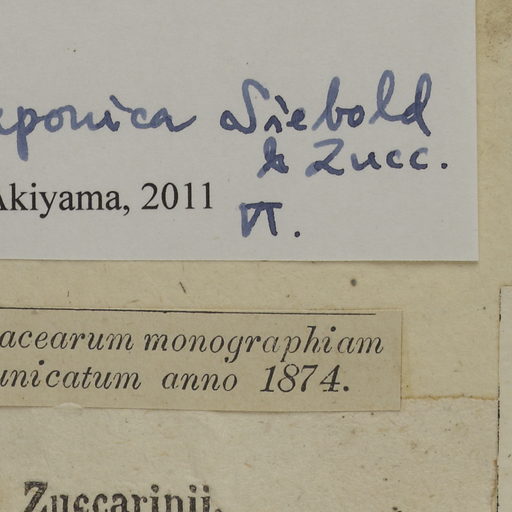 aponica Siebold
& Zucc.
Akiyama, 2011
VI.
acearum monographiam
unicatum anno 1874.
Zuccarinii.